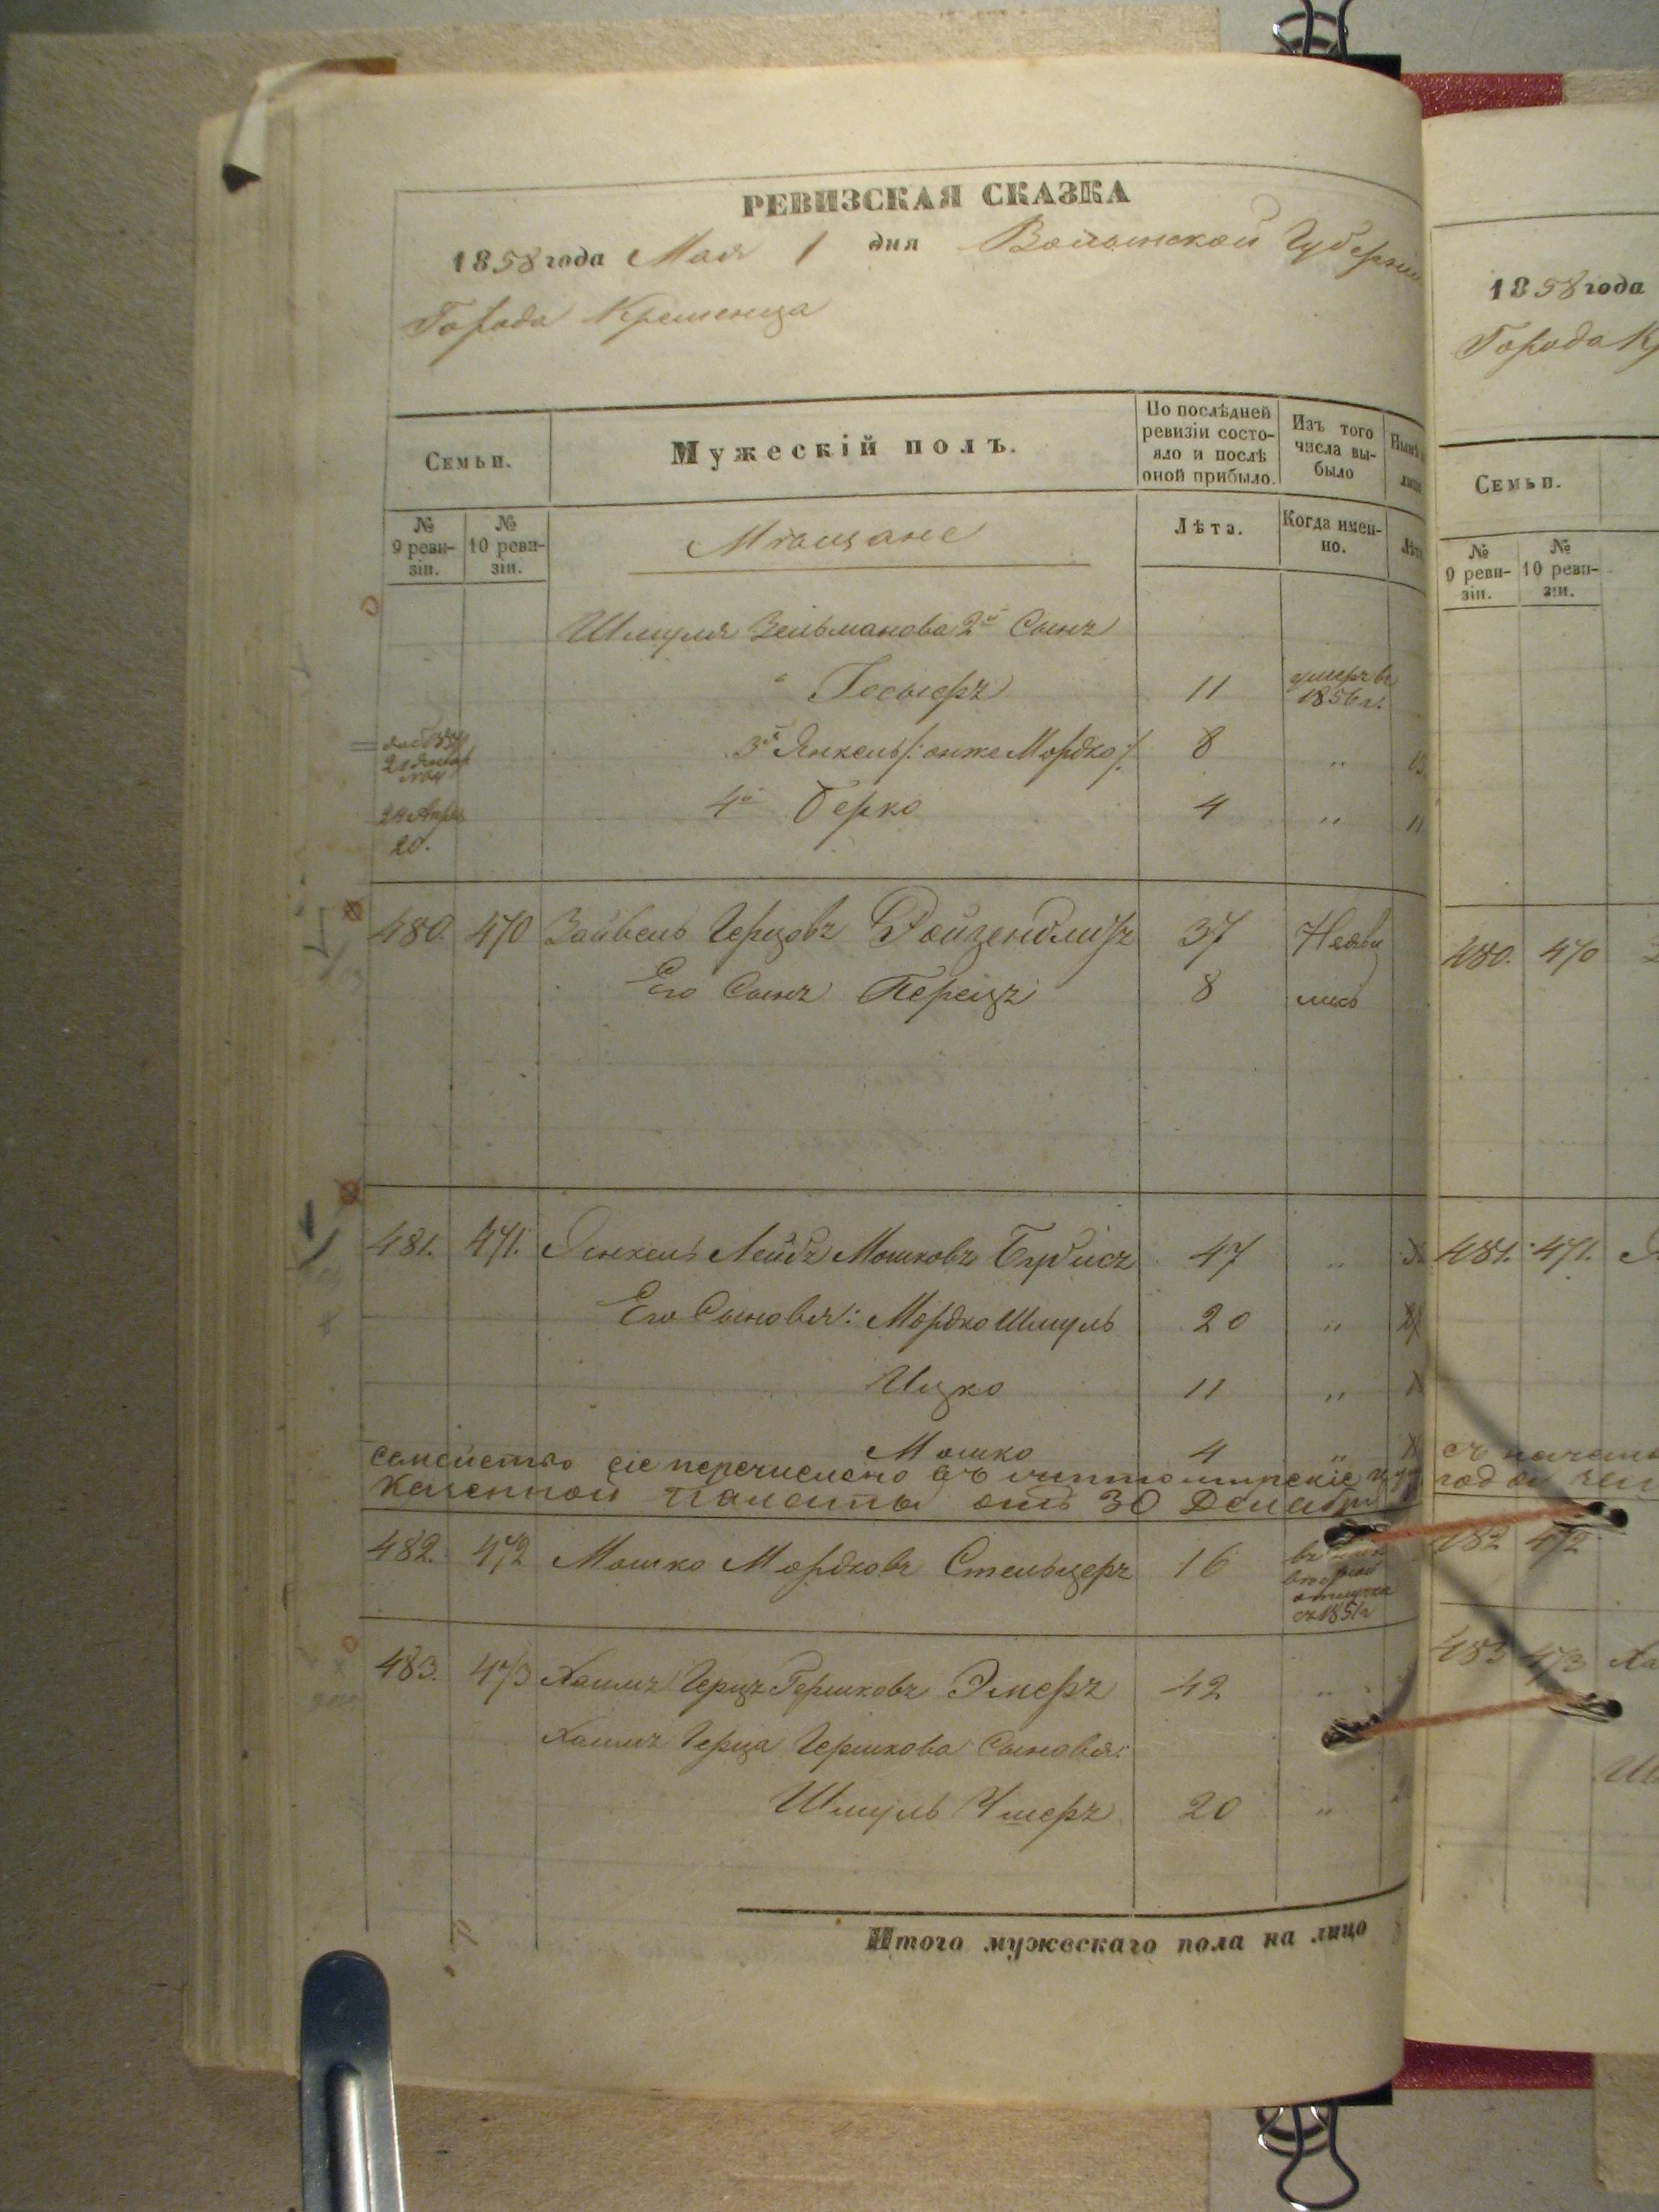 РЕВИЗСКАЯ СКАЗКА
1858 года Мая 1 дня Волынской Губерніи
Города Кременца
Семьи.
Мужескій полъ.
По послѣдней ревизіи состояло и послѣ оной прибыло.
Изъ того числа выбыло
№ 9 ревизіи.
№ 10 ревизіи.
Мѣщане
Лѣта.
Когда именно.
Шмуля Зельманова 2й Сынъ
Іосьеръ 11 умеръ въ 1856 г.
3й Янкель /: онже Мордко :/ 8 "
4й Берко 4 "
480. 470 Зайвель Герцовъ Ройзенблитъ 37 Неяви
Его Сынъ Перецъ 8 лись
481. 471. Янкель Лейбъ Мошковъ 47 "
Его Сыновья: Мордко Шмуль 20 "
Ицко 11 "
Мошко 4 "
семейство сіе перечислено въ житомирскіе
Казенной палаты отъ 30 Декабря
482. 472 Мошко Мордковъ Стельцеръ 16
съ 1851 г
483. 473 Хаимъ Герцъ Гершковъ Эмеръ 42 "
Хаимъ Герца Гершкова Сыновья:
Шмуль Умеръ 20 "
Итого мужескаго пола на лицо
1858 года
Города
Семьи.
№ 9 ревизіи.
№ 10 ревизіи.
480. 470
481. 471.
съ
482 472
483 473